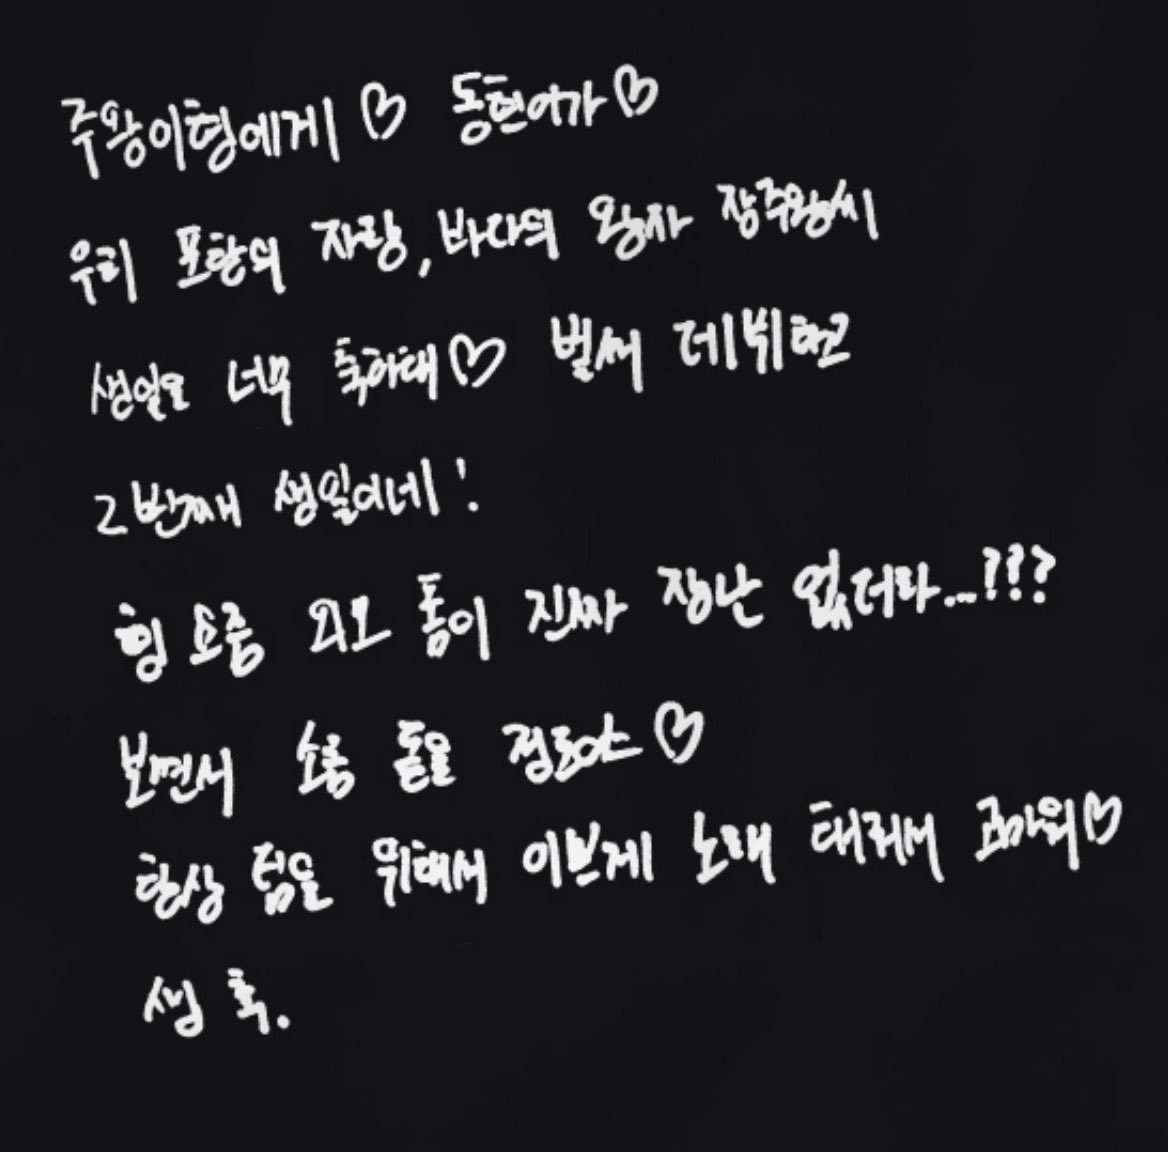 주왕이형에게♡ 동현이가♡
우리 포항의 자랑, 바다의 왕자 장주왕씨
생일 너무 축하해♡ 벌써 데뷔한
2번째 생일이네!
형 요즘 외모 폼이 진짜 장난 없더라...???
보면서 소름 돋을 정도야♡
항상 팀을 위해서 이쁘게 노래 해줘서 고마워♡
생축.